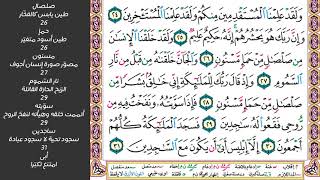 صلصال
طين يابس كالفخّار
26
حمإ
طين أسود متغيّر
26
مسنون
مصوّر صورة إنسان أجوف
26
نار السّموم
الرّيح الحارّة القاتلة
27
سوّيته
أتممت خلقه وهيأته لنفخ الروح
29
ساجدين
سجود تحيّة لا سجود عبادة
29
أبى
امتنع تكبّرا
31
وَلَقَدْ عَلِمْنَا ٱلْمُسْتَقْدِمِينَ مِنكُمْ وَلَقَدْ عَلِمْنَا ٱلْمُسْتَـْٔخِرِينَ ٢٤
وَإِنَّ رَبَّكَ هُوَ يَحْشُرُهُمْ إِنَّهُۥ حَكِيمٌ عَلِيمٌ ٢٥ وَلَقَدْ خَلَقْنَا ٱلْإِنسَٰنَ
مِن صَلْصَٰلٍ مِّنْ حَمَإٍ مَّسْنُونٍ ٢٦ وَٱلْجَآنَّ خَلَقْنَٰهُ مِن قَبْلُ مِن نَّارِ
ٱلسَّمُومِ ٢٧ وَإِذْ قَالَ رَبُّكَ لِلْمَلَٰٓئِكَةِ إِنِّى خَٰلِقٌۢ بَشَرًا مِّن
صَلْصَٰلٍ مِّنْ حَمَإٍ مَّسْنُونٍ ٢٨ فَإِذَا سَوَّيْتُهُۥ وَنَفَخْتُ فِيهِ مِن
رُّوحِى فَقَعُوا۟ لَهُۥ سَٰجِدِينَ ٢٩ فَسَجَدَ ٱلْمَلَٰٓئِكَةُ كُلُّهُمْ
أَجْمَعُونَ ٣٠ إِلَّآ إِبْلِيسَ أَبَىٰٓ أَن يَكُونَ مَعَ ٱلسَّٰجِدِينَ ٣١